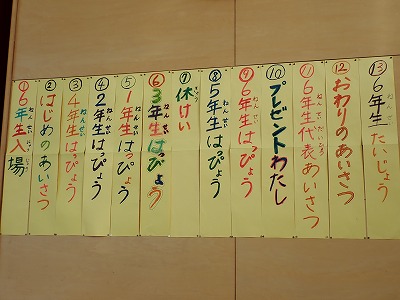 ①6年生入場
②はじめのあいさつ
③4年生はっぴょう
④2年生はっぴょう
⑤1年生はっぴょう
⑥3年生はっぴょう
⑦休けい
⑧5年生はっぴょう
⑨6年生はっぴょう
⑩プレゼントわたし
⑪6年生代表あいさつ
⑫おわりのあいさつ
⑬6年生たいじょう